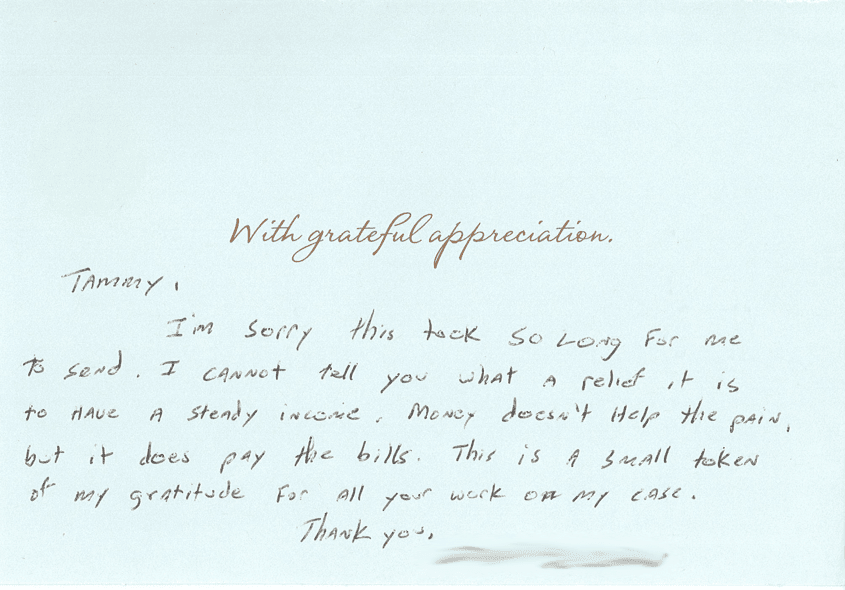 With grateful appreciation.
Tammy,
I'm sorry this took so long for me
to send. I cannot tell you what a relief it is
to have a steady income. Money doesn't help the pain,
but it does pay the bills. This is a small token
of my gratitude for all your work on my case.
Thank you,